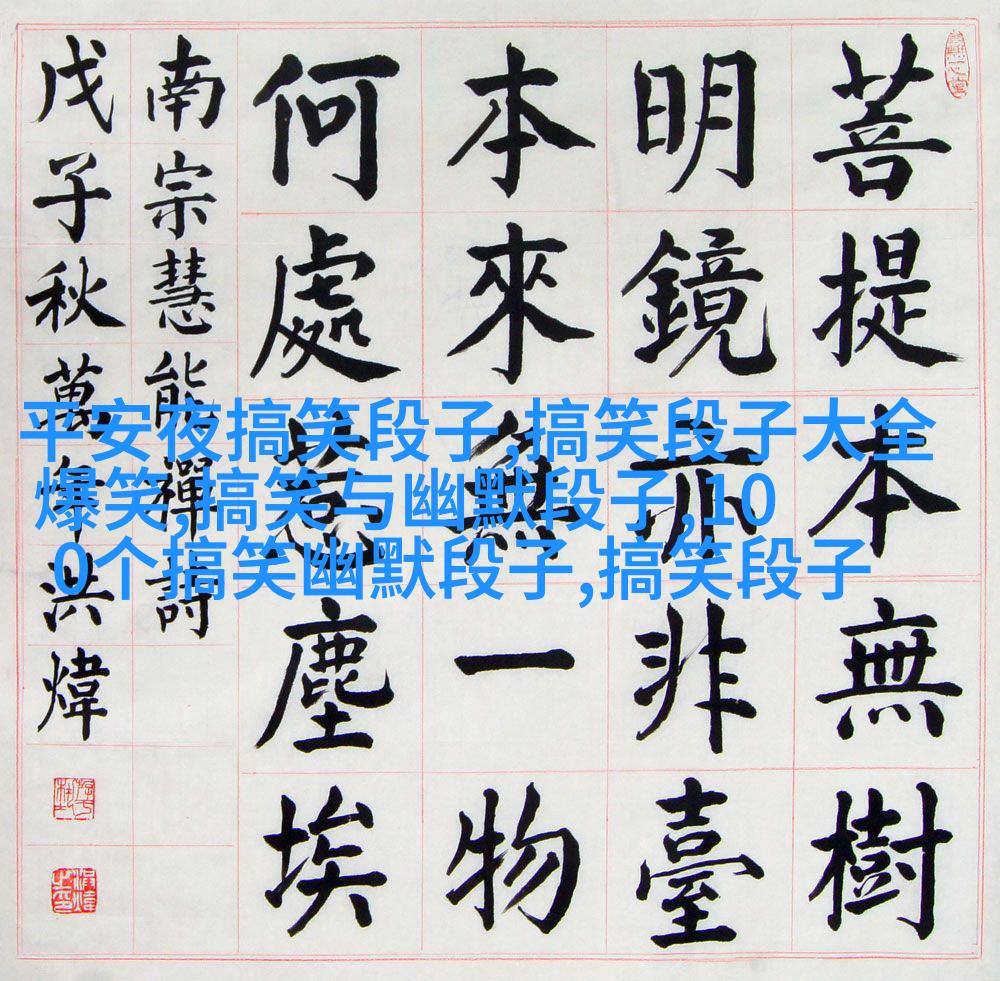 菩提本無樹
明鏡亦非臺
本來無一物
何處惹塵埃
南宗慧能禪詩
戊子秋萬年洪煒
平安夜搞笑段子,搞笑段子大全
爆笑,搞笑与幽默段子,10
0个搞笑幽默段子,搞笑段子